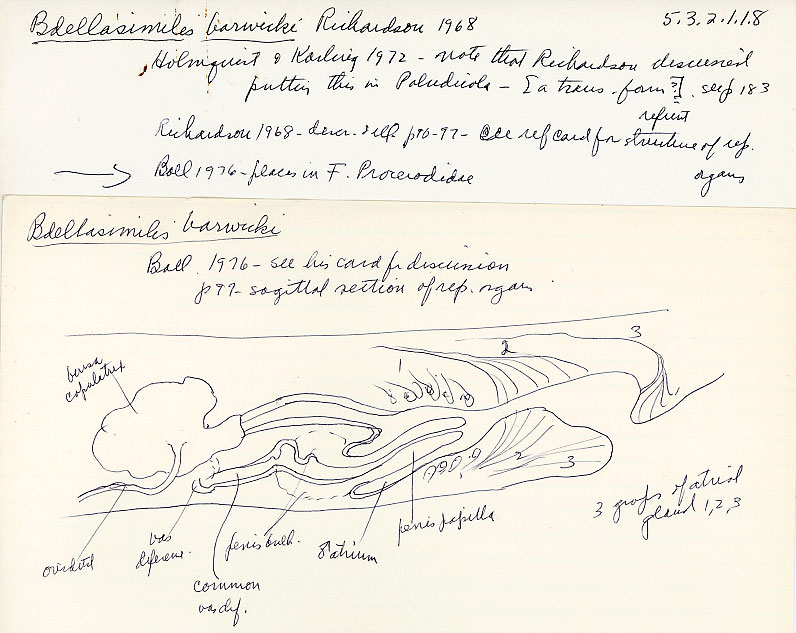 Bdellasimiles barwicki Richardson 1968
5.3.2.1.1.8
Holmquist & Karling 1972 - note that Richardson discussed
putting this in Paludicola - [a trans. form ?]. see p 183
reprint
Richardson 1968 - descr. & ill. p 90-97 - see ref card for structure of rep.
organs
→ Ball 1976 - places in F. Procerodidae
Bdellasimilis barwicki
Ball 1976 - see his card for discussion
p 97 - sagittal section of rep. organs
bursa
copulatrix
2
3
2
3
3 groups of atrial
gland 1, 2, 3
oviduct
vas
deferens.
common
vas def.
penis bulb.
atrium
penis papilla